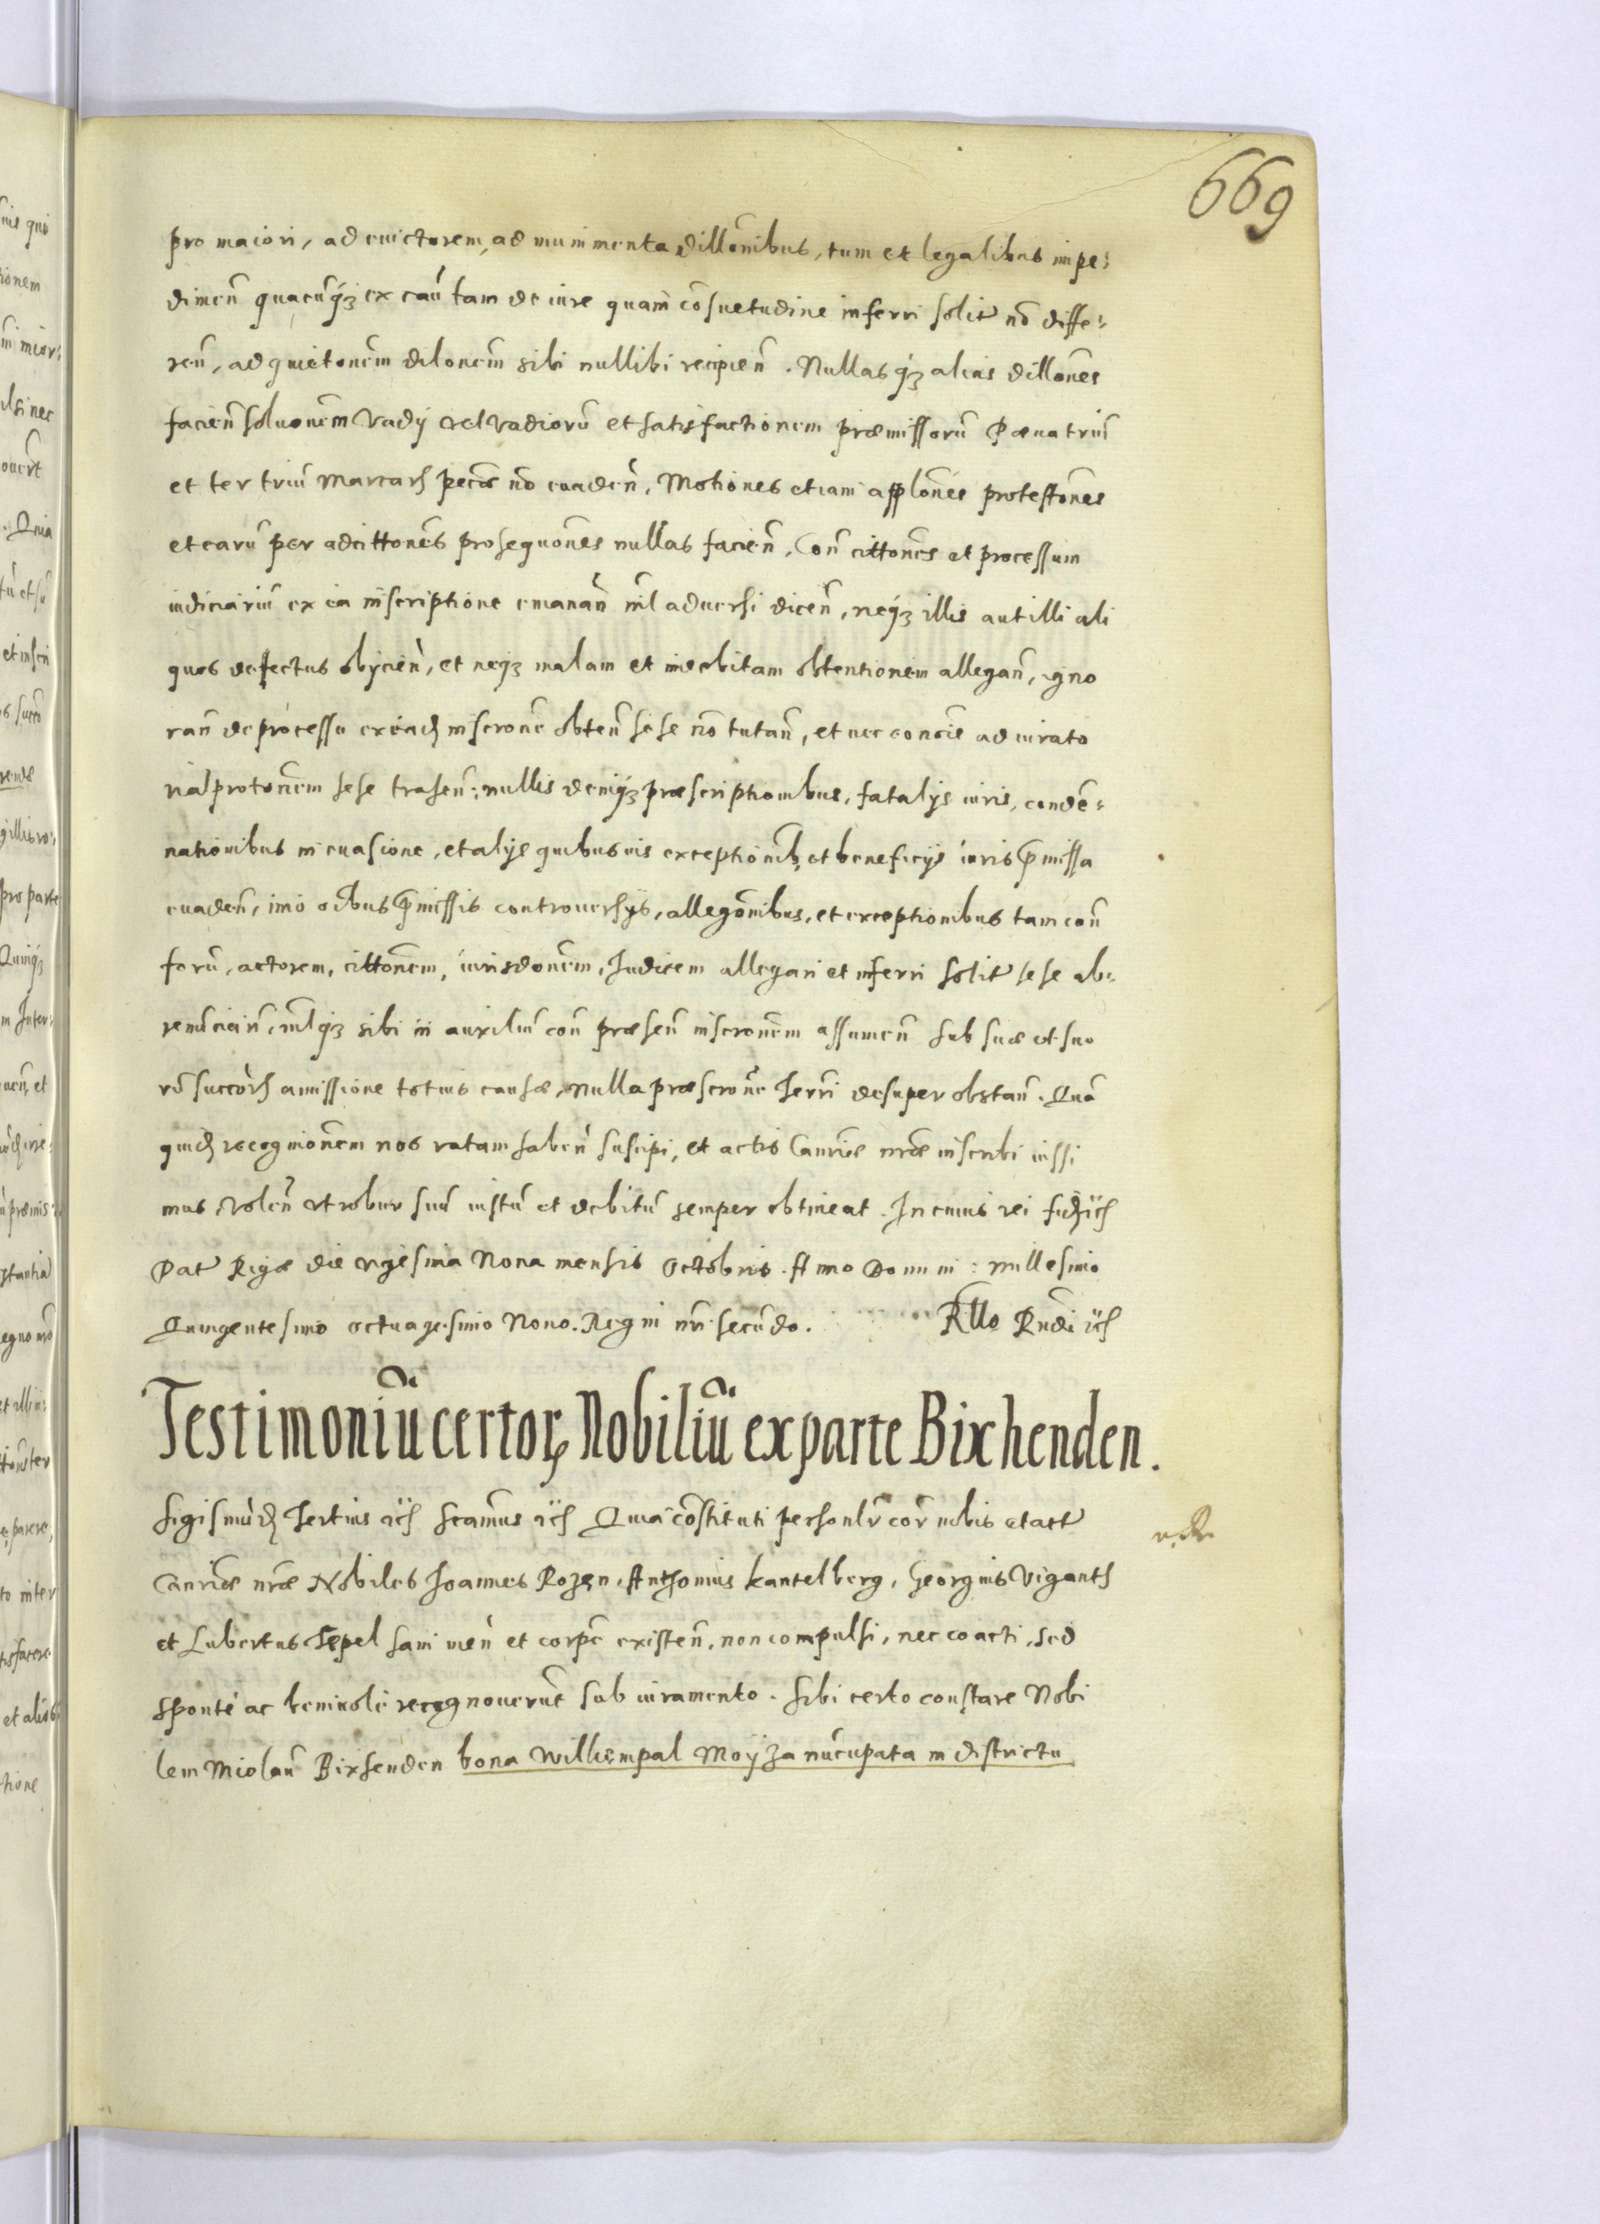 669
pro maiori, ad euictorem, ad munimenta dillonibus, tum et legalibus impe:
dimen̄ quacūqȝ ex cau tam de iure quam cōsuetudine inferri solit nō diffe:
ren̄, ad quietonem dilonem sibi nullibi recipien̄. Nullas qȝ alias dillones
facien̄ soluonem vadij vel vadiorū et satisfactionem præmissorū Pæna triū
et ter triū marcarȝ pecūæ nō euaden̄, Motiones etiam applones protestones
et earū per adcittones prosequones nullas facien̄, Con cittones et processum
iudiciariū ex ea inscriptione emanan̄ nil aduersi dicen̄, neqȝ illis aut illi ali
quos defectus obijcien̄, et neqȝ malam et indebitam obtentionem allegan̄, igno
ran̄ de processu ex eadȝ inscrone obten̄ sese nō tutan̄, et nec concie ad iurato
ria protonem sese trahen̄: nullis deniqȝ præscriptionibus, fatalijs iuris, condē:
nationibus in euasione, et alijs quibusuis exceptionibȝ et beneficijs iuris p̄missa
euaden̄, imo oībus p̄missis controuersijs, allegonibus, et exceptionibus tam con
forū, actorem, cittonem, iurisdonem, Iudicem allegari et inferri solit sese ab:
renūcian̄, nilqȝ sibi in auxiliū con præsen̄ inscronem assumen̄ sub suæ et suo
rū succorȝ amissione totius causæ, nulla præscrone terri desuper obstan̄. Quā
quidȝ recognionem nos ratam haben̄ suscipi, et actis Canriæ nræ inscribi iussi
mus, volen̄ vt robur suū iustū et debitū semper obtineat. In cuius rei fidȝ ꝛc
Dat Rigæ die vigesima Nona mensis Octobris. Anno Domini: millesimo
Quingentesimo octuagesimo Nono. Regni nri secūdo. Rllo Rndi ꝛc
Testimoniū certorȝ Nobiliū ex parte Bixhenden.
Sigismūdȝ Tertius ꝛc scamus ꝛc Quia cōstituti personlr cor nobis et act
Canriæ nræ Nobiles Ioannes Rozen, Anthonius kantelberg, Georgius Viganth
et Lubertus Tepel sani men̄ et corpe existen̄, non compulsi, nec coacti, sed
sponte ac beniuole recognouerūt sub iuramento. Sibi certo constare Nobi
lem Miolau Bixhenden bona Williempal Moyza nūcupata in districtu